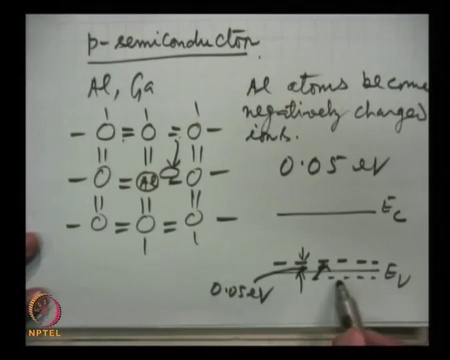 p-semiconductor
Al, Ga
Al atoms become
negatively charged
ions.
0.05 eV
Al
Ec
Ev
0.05 eV
NPTEL